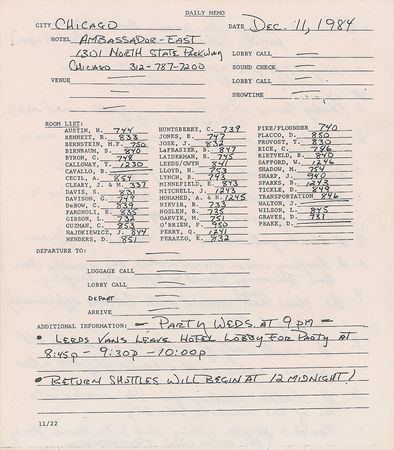 DAILY MEMO
CITY CHICAGO DATE DEC. 11, 1984
HOTEL AMBASSADOR-EAST
1301 NORTH STATE PARKWAY LOBBY CALL
CHICAGO 312-787-7200 SOUND CHECK
VENUE LOBBY CALL
SHOWTIME
ROOM LIST:
AUSTIN, H. 744 HUNTSBERRY, C. 739 PIKE/FLOUNDER 740
BENNETT, R. 833 JONES, E. 747 PLACCO, D. 850
BERNSTEIN, M.F. 750 JOSE, J. 832 PROVOST, T. 830
BIRNBAUM, S. 840 LAFRASIER, B. 847 RICE, C. 746
BYRON, C. 748 LAIDERMAN, R. 745 RIETVELD, B. 840
CALLOWAY, T. 1230 LEEDS/GWYN 841 SAFFORD, W. 1246
CAVALLO, B. LLOYD, H. 753 SHADOW, M. 754
CECIL, J. 854 LYNCH, R. 743 SHARP, J. 940
CLEARY, J. & M. 337 MINNEFIELD, E. 843 SPARKS, B. 1243
DAVIS, S. 831 MITCHELL, J. 1243 TICKLE, D. 849
DAVISON, G. 749 MOHAMED, A. & N. 1245 TRANSPORTATION 846
DeBOW, C. 839 NEKVIK, B. 733 WALTON, J.
FARGNOLI, S. 835 NOSLER, R. 735 WILSON, L. 845
GIBSON, L. 732 OAKVIK, M. 751 GRAVES, D. 931
GUZMAN, C. 853 O'BRIEN, P. 950 PEAKE, D.
HAJDKIEWICZ, J. 844 PERRY, Q. 1241
HENDERS, D. 851 PERAZZO, E. 832
DEPARTURE TO:
LUGGAGE CALL
LOBBY CALL
DEPART
ARRIVE
ADDITIONAL INFORMATION: - PARTY WEDS. AT 9 PM -
• LEEDS VANS LEAVE HOTEL LOBBY FOR PARTY AT
8:45p - 9:30p - 10:00p
• RETURN SHUTTLES WILL BEGIN AT 12 MIDNIGHT!
11/22